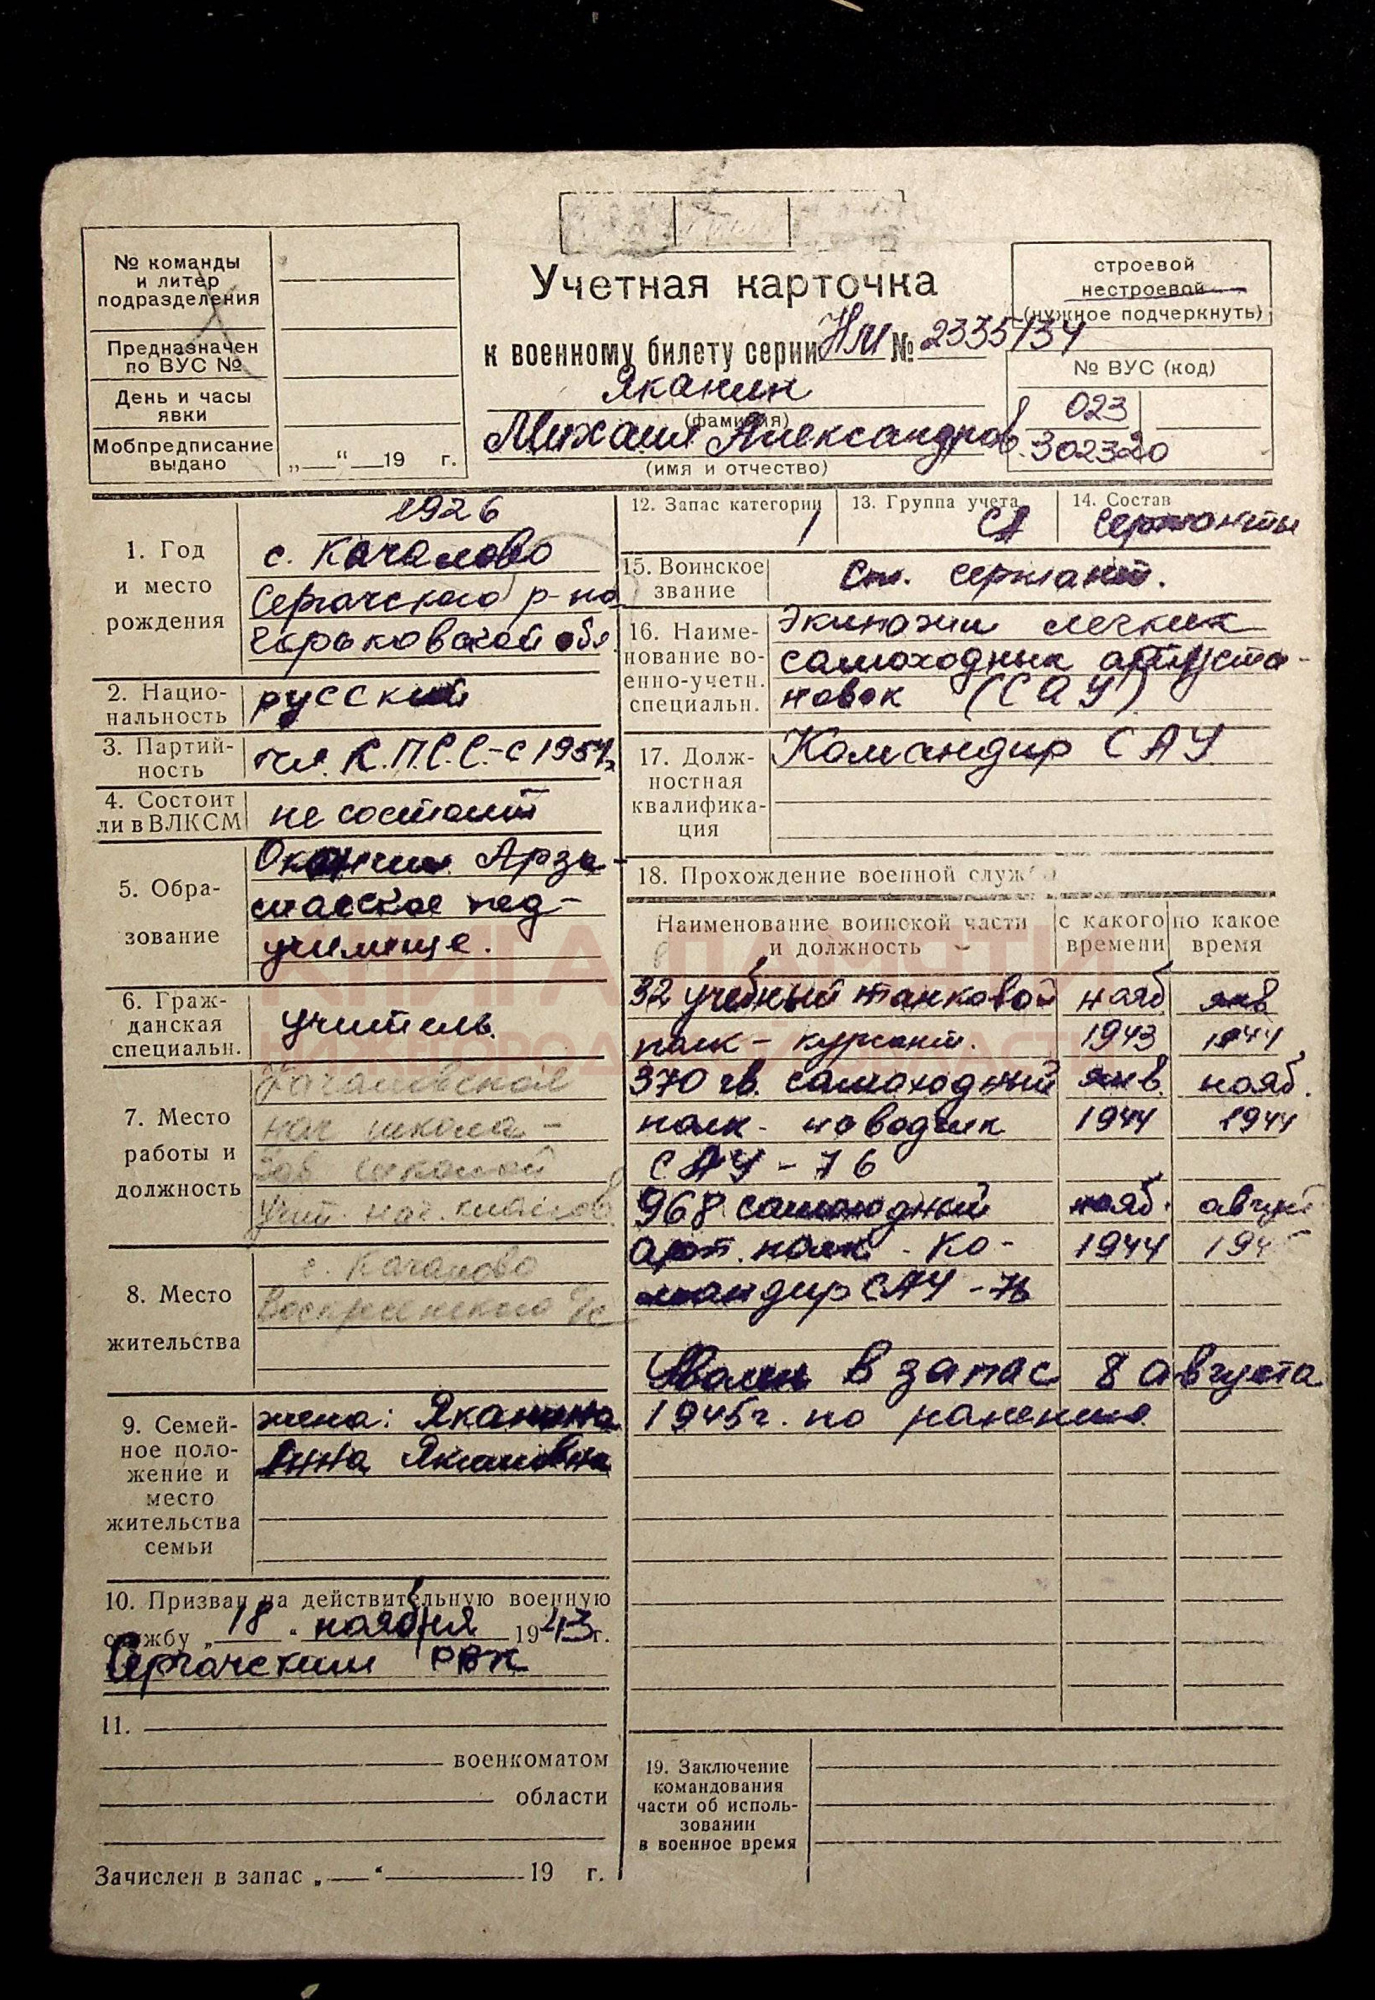 № команды
и литер
подразделения
Предназначен
по ВУС №
День и часы
явки
Мобпредписание
выдано
„ “ 19 г.
Учетная карточка
к военному билету серии НМ № 2335134
Яканин
(фамилия)
Михаил Александров.
(имя и отчество)
строевой
нестроевой
(нужное подчеркнуть)
№ ВУС (код)
023
302320
1. Год
и место
рождения
1926
с. Качалово
Сергачского р-на
Горьковской обл.
2. Нацио-
нальность
русский
3. Партий-
ность
чл. К.П.С.С.-с 1957г.
4. Состоит
ли в ВЛКСМ
не состоит
5. Обра-
зование
Окончил Арза-
масское пед-
училище.
6. Граж-
данская
специальн.
учитель.
7. Место
работы и
должность
Качаловской
нач школа -
Зав школой
Учит. нач. классов
8. Место
жительства
с. Качалово
Воскресенского с/с
9. Семей-
ное поло-
жение и
место
жительства
семьи
жена: Яканина
Анна Яковлевна
10. Призван на действительную военную
службу „ 18 “ ноября 1943 г.
Сергачским РВК
11.
военкоматом
области
Зачислен в запас „ “ 19 г.
12. Запас категории
1
13. Группа учета
СА
14. Состав
сержанты
15. Воинское
звание
Ст. сержант.
16. Наиме-
нование во-
енно-учетн.
специальн.
Экипажи легких
самоходных артуста-
новок (САУ)
17. Долж-
ностная
квалифика-
ция
Командир САУ
18. Прохождение военной службы
Наименование воинской части
и должность
с какого
времени
по какое
время
32 учебный танковой нояб янв
полк - курсант. 1943 1944
370 гв. самоходный янв. нояб.
полк - наводчик 1944 1944
САУ - 76
968 самоходный нояб. август
арт. полк - ко- 1944 1945
мандир САУ - 76
Уволен в запас 8 августа
1945г. по ранению
19. Заключение
командования
части об исполь-
зовании
в военное время
КНИГА ПАМЯТИ
НИЖЕГОРОДСКОЙ ОБЛАСТИ